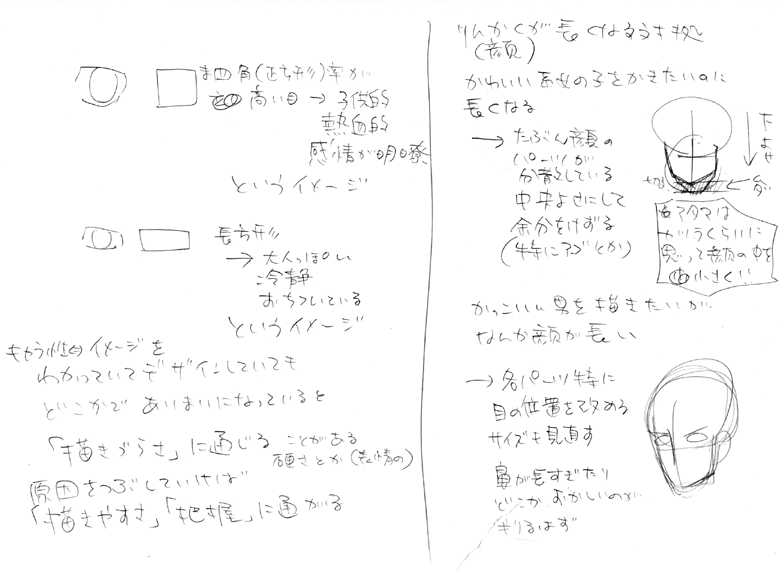 まっ四角(正方形)率が
高い目 → 子供的
熱血的
感情が明瞭
というイメージ
長方形
→ 大人っぽい
冷静
おちついている
というイメージ
キャラ性⇔イメージを
わかっていてデザインしていても
どこかで あいまいになっていると
「描きづらさ」に通じる ことがある
硬さとか(表情の)
原因をつぶしていけば
「描きやすさ」「把握」に通がる
りんかくが長くなる対処
(顔)
かわいい系女の子をかきたいのに
長くなる
→ たぶん顔の
パーツが
分散している
中央よせにして
余分をけずる
(特にアゴとか)
下よせ
切る
アタマは
思って顔の中を
小さく!!
かっこいい男を描きたいが
なんか顔が長い
→ 各パーツ特に
目の位置を改める
サイズも見直す
鼻が長すぎたり
どこか おかしいのが
あるはず